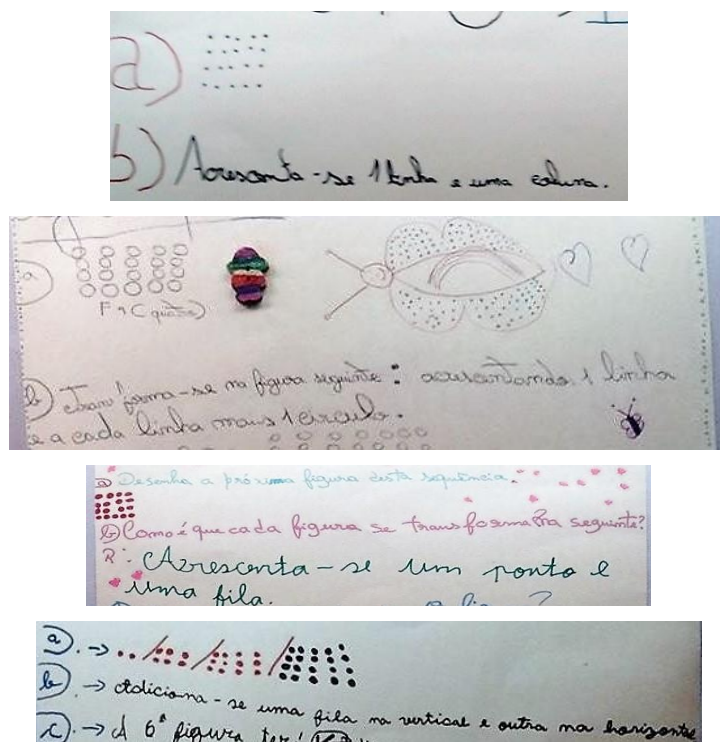 a)
b) Acrescenta-se 1 linha e uma coluna.
a)
F 4 (quatro)
b) Transforma-se na figura seguinte: acrescentando 1 linha
e a cada linha mais 1 circulo.
a) Desenha a próxima figura desta sequência.
b) Como é que cada figura se transforma na seguinte?
R: Acrescenta-se um ponto e
uma fila.
a). →
b). → Adiciona-se uma fila na vertical e outra na horizontal
c). → A 6ª figura